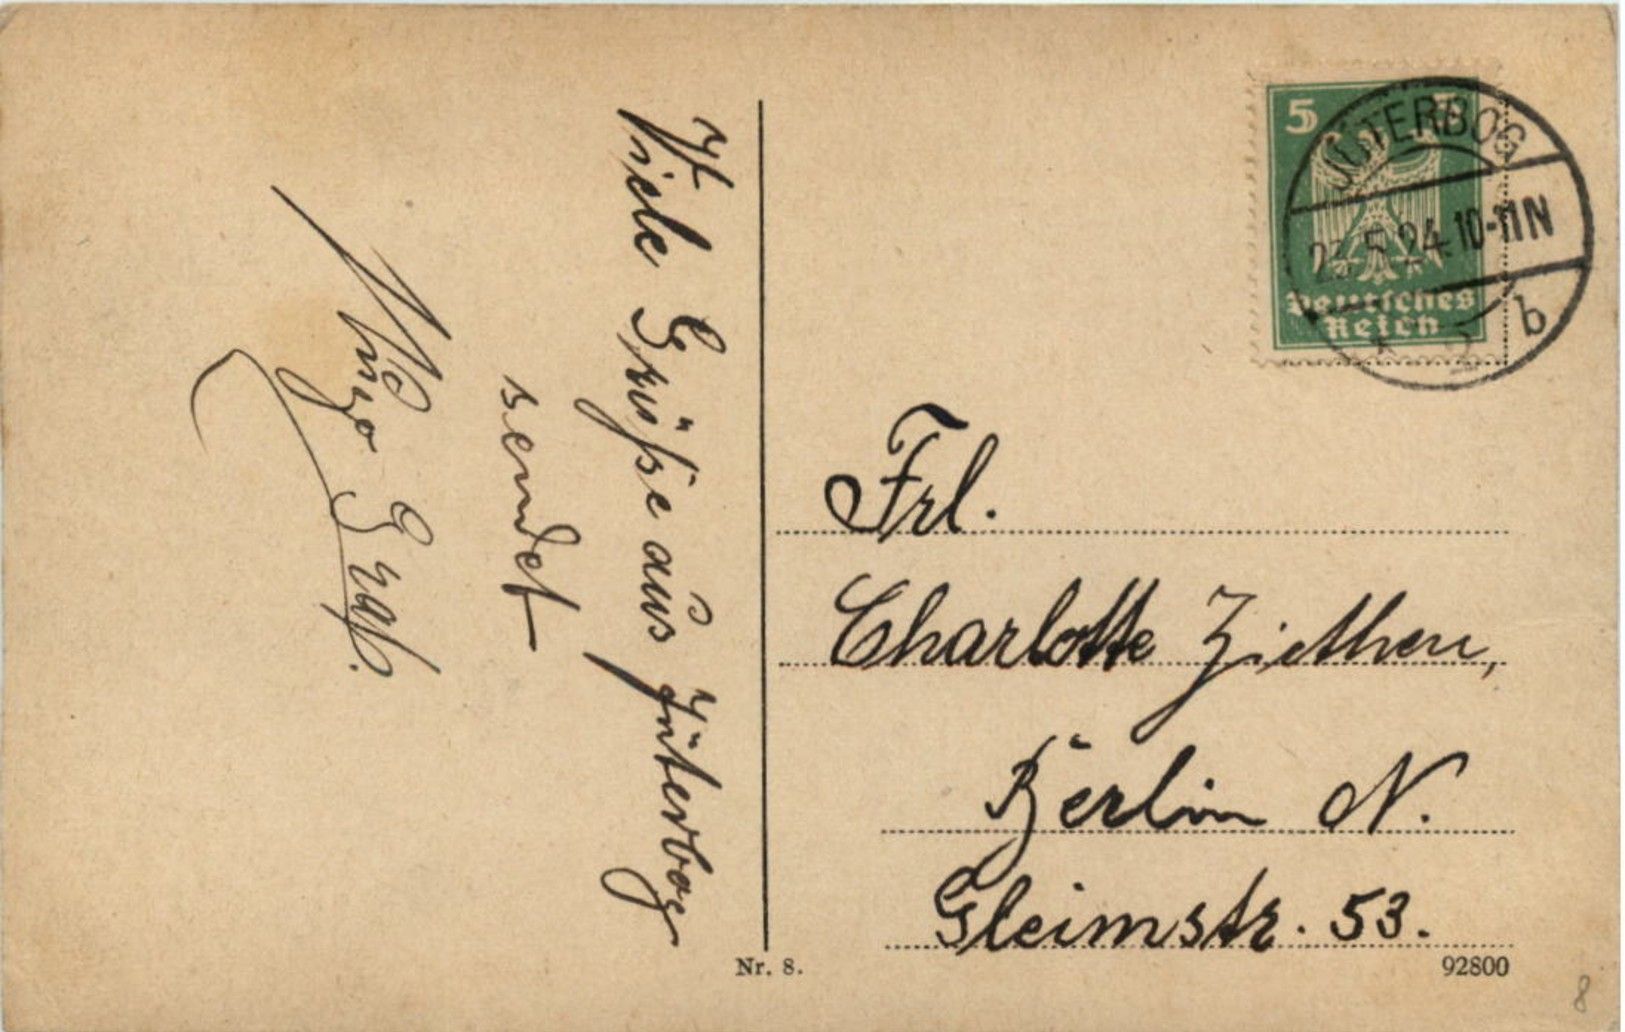 Viele Grüße aus Jüterbog
sendet
Hugo Graß.
5 5
Deutsches
Reich
JÜTERBOG
5.24 10-11N
b
Frl.
Charlotte Ziethen,
Berlin N.
Gleimstr. 53.
Nr. 8.
92800
8